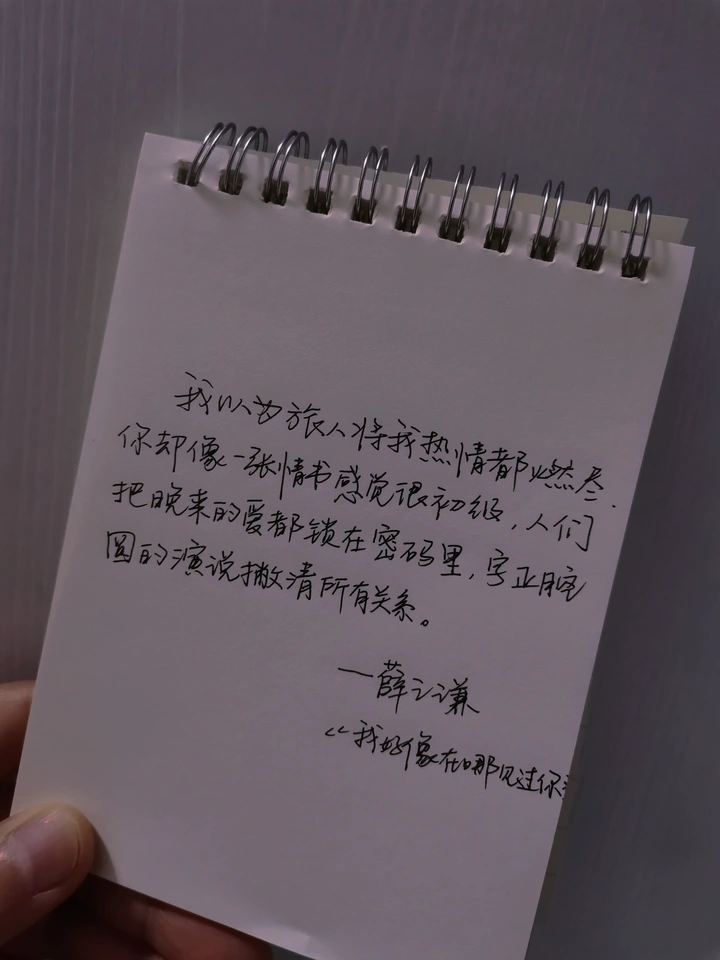 我以为旅人将我热情都燃尽.
你却像一张情书感觉很初级,人们
把晚来的爱都锁在密码里,字正腔
圆的演说撇清所有关系。
一薛之谦
《我好像在哪见过你